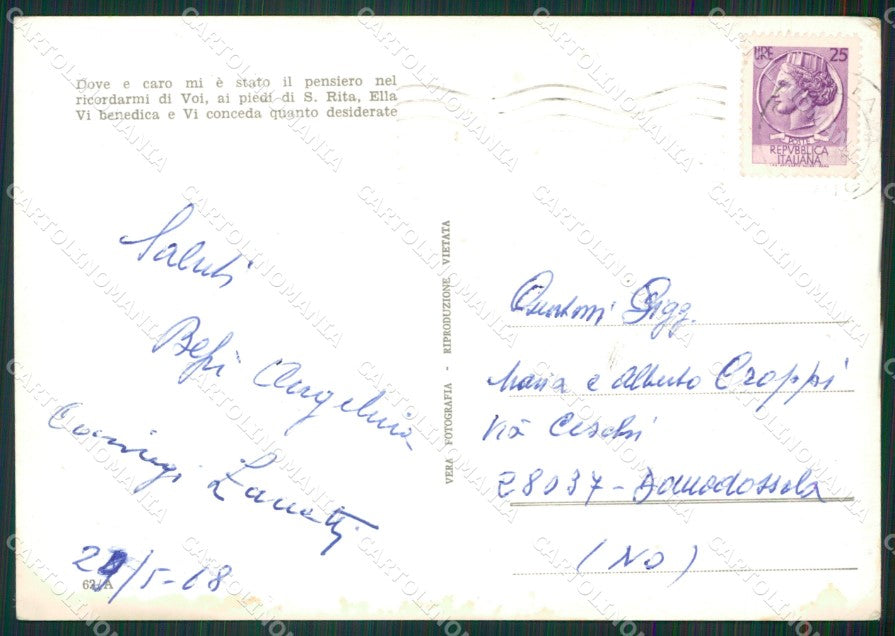 Dove e caro mi è stato il pensiero nel
ricordarmi di Voi, ai piedi di S. Rita, Ella
Vi benedica e Vi conceda quanto desiderate
LIRE 25
POSTE
REPVBBLICA
ITALIANA
Saluti
Bepi Angelina
Zanetti
/5-68
62/A
VERA FOTOGRAFIA - RIPRODUZIONE VIETATA
Gigg.
Maria e Alberto Croppi
Via Ceschi
28037 - Domodossola
(NO)
CARTOLINOMANIA